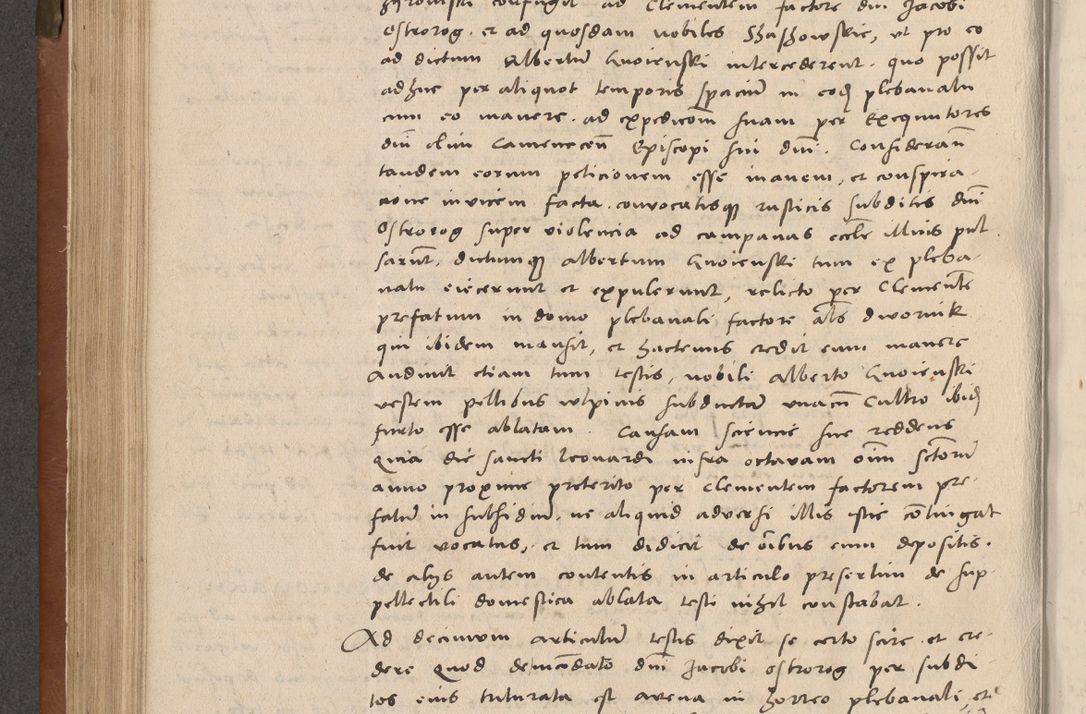 confugit ad Clementem factore dni Jacobi
Ostrorog. et ad quosdam nobiles vt pro eo
ad dictum Albertũ Gnoienski intercederent. quo possit
adhuc per aliquot temporis spaciũ in eod plebanatu
cum eo manere. ad expedicom suam per Exequutores
dni olim Camenecen Episcopi sui dni. Consideran
tandem eorum peticionem esse inanem, et conspira-
cione invicem facta. convocatisq rusticis subditis dni
Ostrorog super violencia ad campanas eccle illius pul
sarũt, dictumq Albertum Gnoienski tum ex pleba-
natu eiecerunt et expulerunt, relicto per Clemente
prefatum in domo plebanali factore als dwornik
qui ibidem mansit, et hactenus credit eum manere
Audiuit etiam tum testis, nobili Alberto Gnoienski
vestem pellibus vulpinis subductã vnacũ Cultro ibid
furto esse ablatam. Causam sciencie sue reddens
Quia die sancti Leonardi infra octauam oim sctorũ
anno proxime preterito per Clementem factorem pre-
fatũ in subsidiũ, ne aliquid adversi illis istic cõtingat
fuit vocatus, et tum didicit de oibus eum depositis.
de alijs autem contentis in articulo presertim de sup-
pellectili domestica ablata testi nihil constabat.
Ad decimum articulũ testis dixit se certo scire et cre-
dere Quod de mandato dni Jacobi Ostrorog per subdi
tos eius triturata est avena in horreo plebanali, et